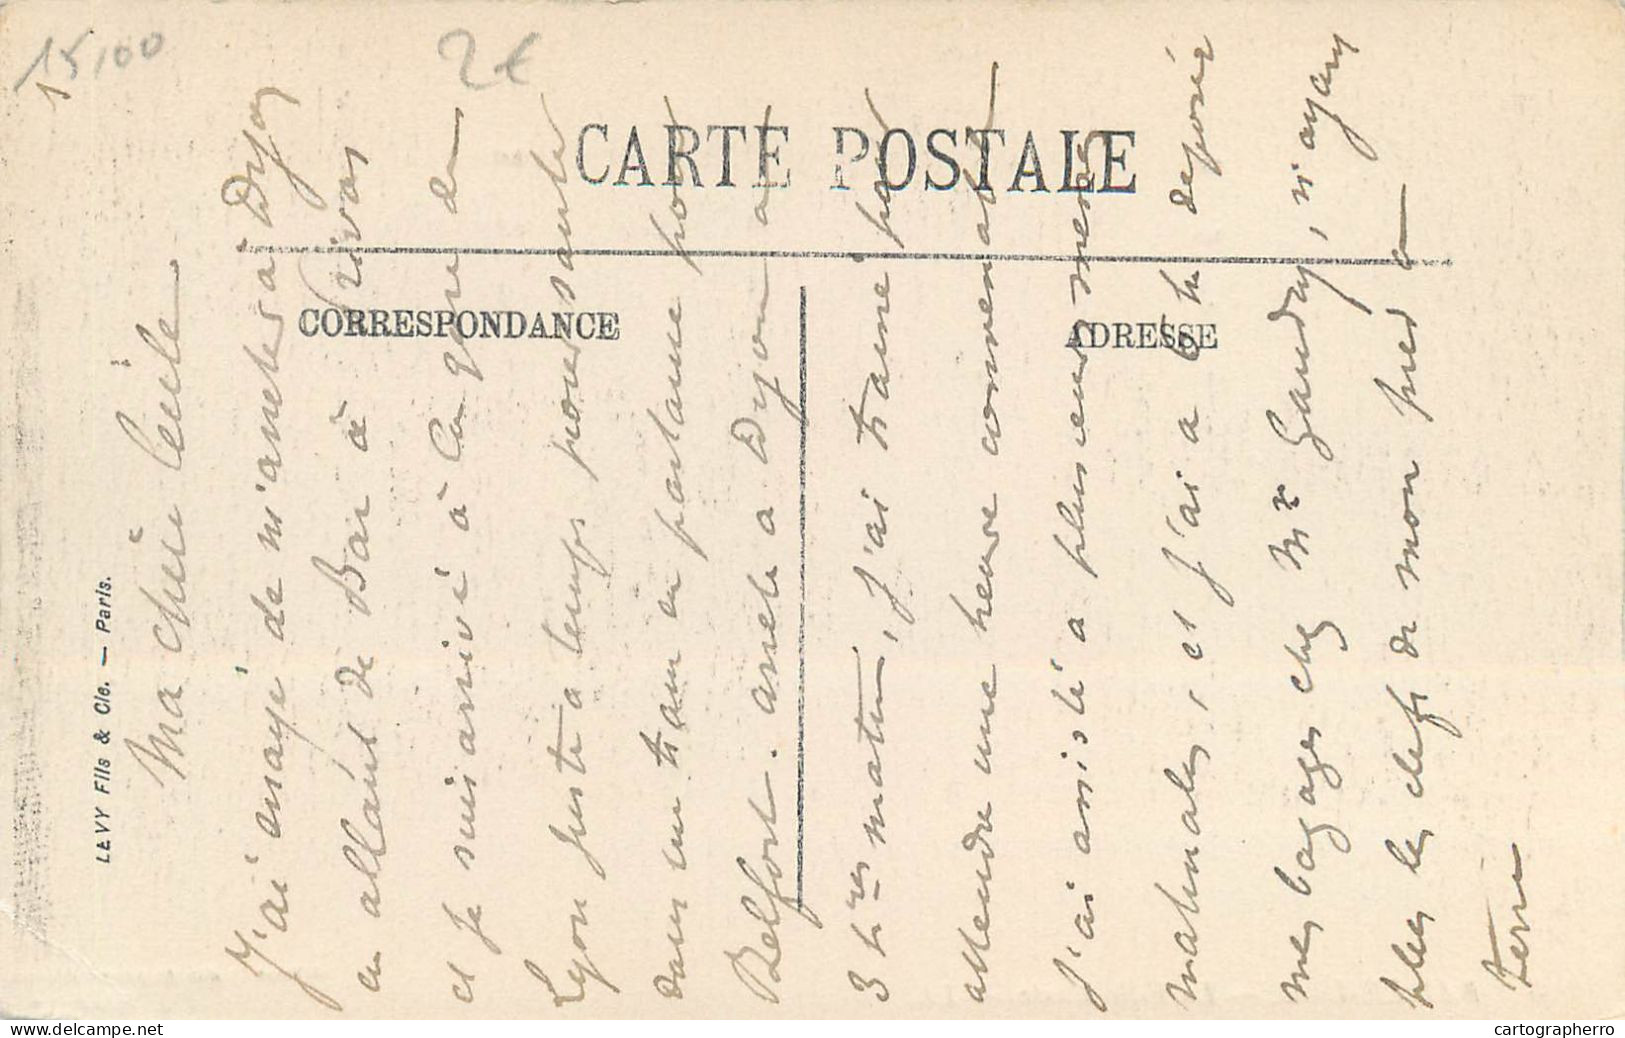 15,00
2€
CARTE POSTALE
CORRESPONDANCE
ADRESSE
LEVY Fils & Cie. — Paris.
Ma chère Cécile
J'ai essayé de m'arreter à Dijon
en allant de Bar à Privas
et je suis arrivé à la gare de
Lyon juste a temps pour sauter
dans un train en partance pour
Belfort. arreté a Dijon a
3 hres matin, j'ai trainé par
attendre une heure convenable
J'ai assisté a plusieurs messes
matinales, et j'ai a 6 h deposé
mes bagages chez Mr Gaudry, n'ayant
plus les clefs de mon pied a
terre
www.delcampe.net
cartographerro